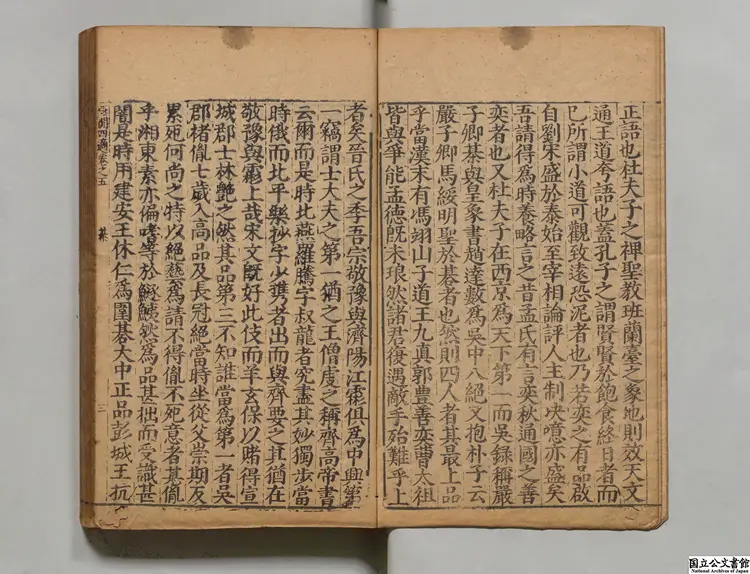 正語也杜夫子之禆聖教班蘭臺之象地則效天文
通王道夸語也蓋孔子之謂賢賢於飽食終日者而
已所謂小道可觀致遠恐泥者也乃若奕之有品啟
自劉宋盛於泰始至宰相論評人主制决噫亦盛矣
吾請得為時養略言之昔孟氏有言奕秋通國之善
奕者也又杜夫子在西京為天下第一而吳錄稱嚴
子卿綦與皇象書趙達數為吳中八絕又抱朴子云
嚴子卿馬綏明聖於碁者也然則四人者其最上品
乎當漢末有馮翊山子道王九真郭豊善奕曹太祖
皆與爭能孟德旣未琅然諸君復遇敵手殆難乎上
者矣晉氏之季吾宗敬豫與濟陽江霦俱為中興第
一竊謂士大夫之第一猶之王僧虔之稱齊高帝書
云爾而是時北燕羅騰字叔龍者究盡其妙獨步當
時俄而北平樂抄字少携者出而與齊要之其猶在
敬豫與霦上哉宋文旣好此伎而羊玄保以賭得宣
城郡士林艷之然其品第三不知誰當為第一者吳
郡褚胤七歲入高品及長冠絕當時坐從父崇期友
累死何尚之特以絕藝為請不得胤不死意者其胤
乎湘東素亦偏嗜等於鱁鮧欻為品甚拙而受譏甚
闇是時用建安王休仁為圍碁大中正品彭城王抗
卷之五
綦
三
国立公文書館
National Archives of Japan